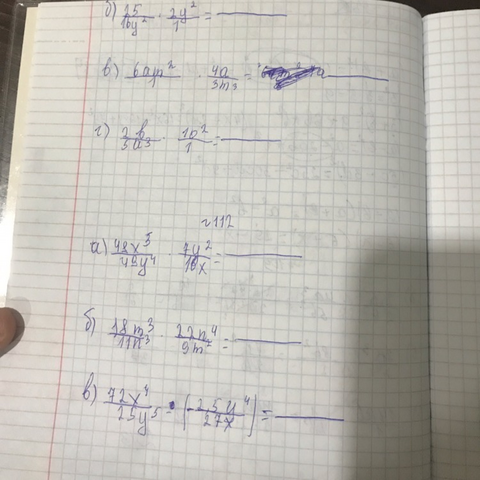 б) 25/16y² · 2y²/1 = ______
в) 6am²/1 · 4a/3m³ = ______
г) 2b/3a³ · 1b²/1 = ______
№112
а) 48x⁵/49y⁴ · 7y²/16x = ______
б) 18m³/11n³ · 22n⁴/9m² = ______
в) 72x⁴/25y⁵ · (-2,5y⁴/27x) = ______